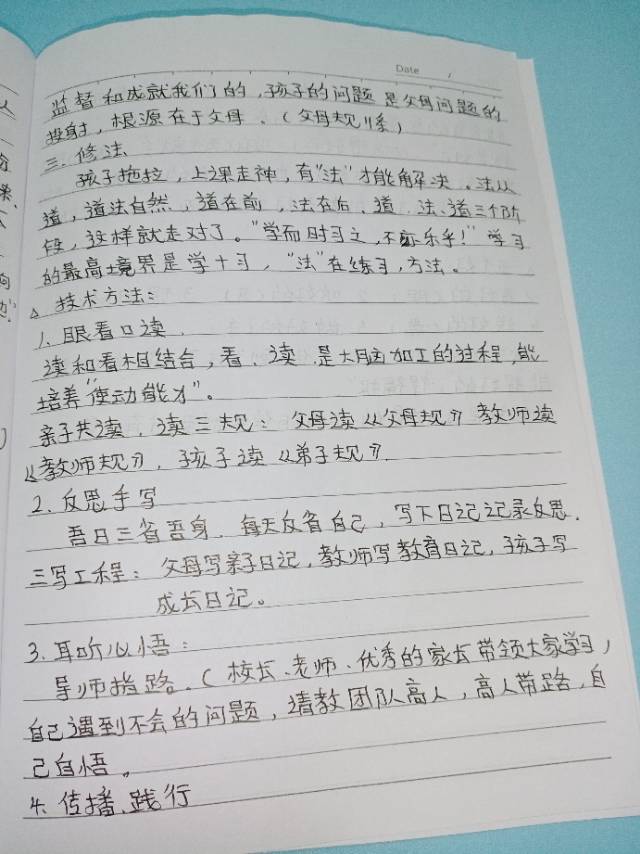 Date /
监督和成就我们的,孩子的问题是父母问题的
投射,根源在于父母。(父母规11条)
三.修法
孩子拖拉,上课走神,有"法"才能解决。法从
道,道法自然,道在前,法在后.道.法.道三个阶
段,这样就走对了。"学而时习之,不亦乐乎!"学习
的最高境界是学+习,"法"在练习,方法。
△ 技术方法:
1. 眼看口读.
读和看相结合,看、读是大脑加工的过程,能
培养"使动能才"。
亲子共读.读三规:父母读《父母规》教师读
《教师规》,孩子读《弟子规》
2. 反思手写
吾日三省吾身.每天反省自己,写下日记记录反思.
三写工程:父母写亲子日记,教师写教育日记,孩子写
成长日记。
3. 耳听心悟:
导师指路。(校长、老师、优秀的家长带领大家学习)
自己遇到不会的问题,请教团队高人,高人带路,自
己自悟。
4. 传播、践行